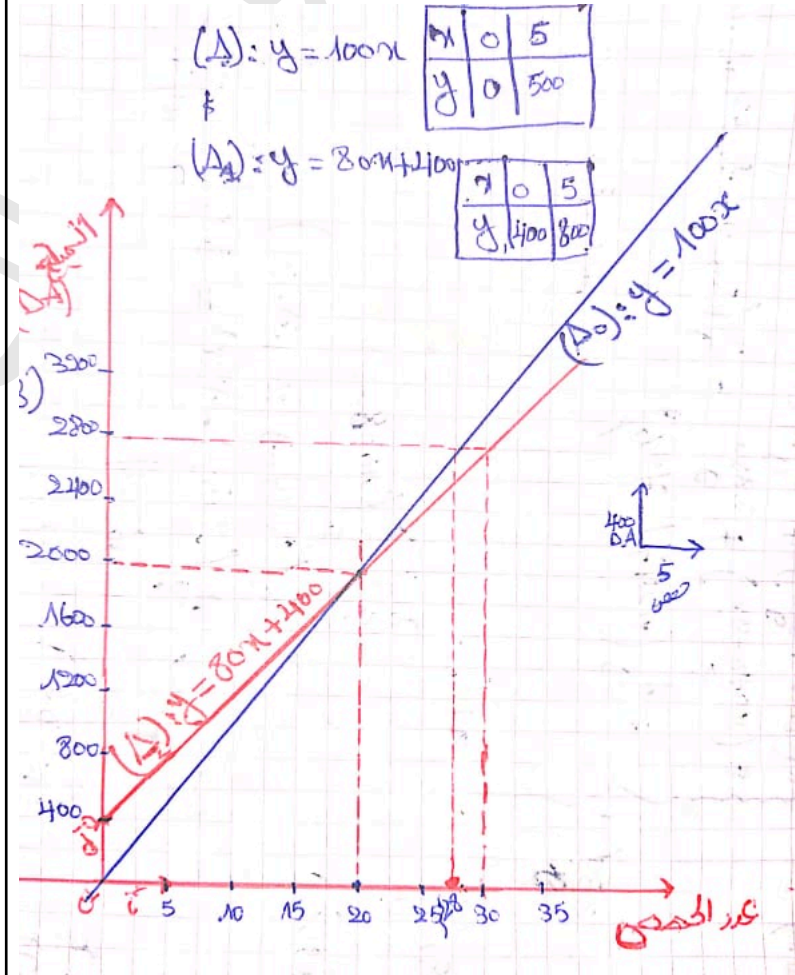 (Δ): y = 100x
x 0 5
y 0 500
(Δ₁): y = 80x+400
x 0 5
y 400 800
(Δ₀): y = 100x
3200
2800
2400
2000
1600
1200
800
400
(Δ₁): y = 80x+400
400
DA
5
حصص
0 5 10 15 20 25 28 30 35
عدد الحصص